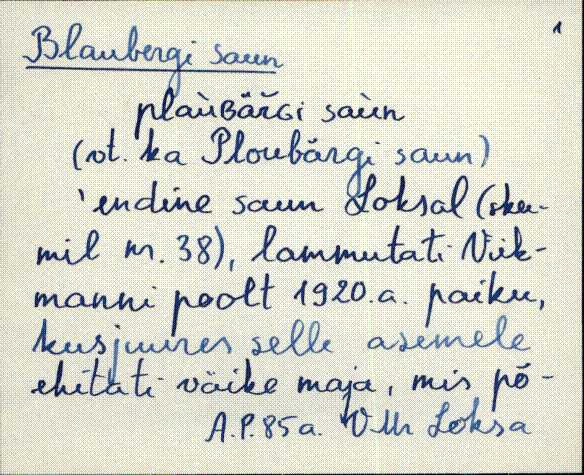 1
Blaubergi saun
plaùʙäř̌ɢi saùn
(vt. ka Ploubärgi saun)
'endine saun Loksal (skee-
mil nr. 38), lammutati Viik-
manni poolt 1920.a. paiku,
kusjuures selle asemele
ehitati väike maja, mis põ-
A.P. 85a. VMr Loksa